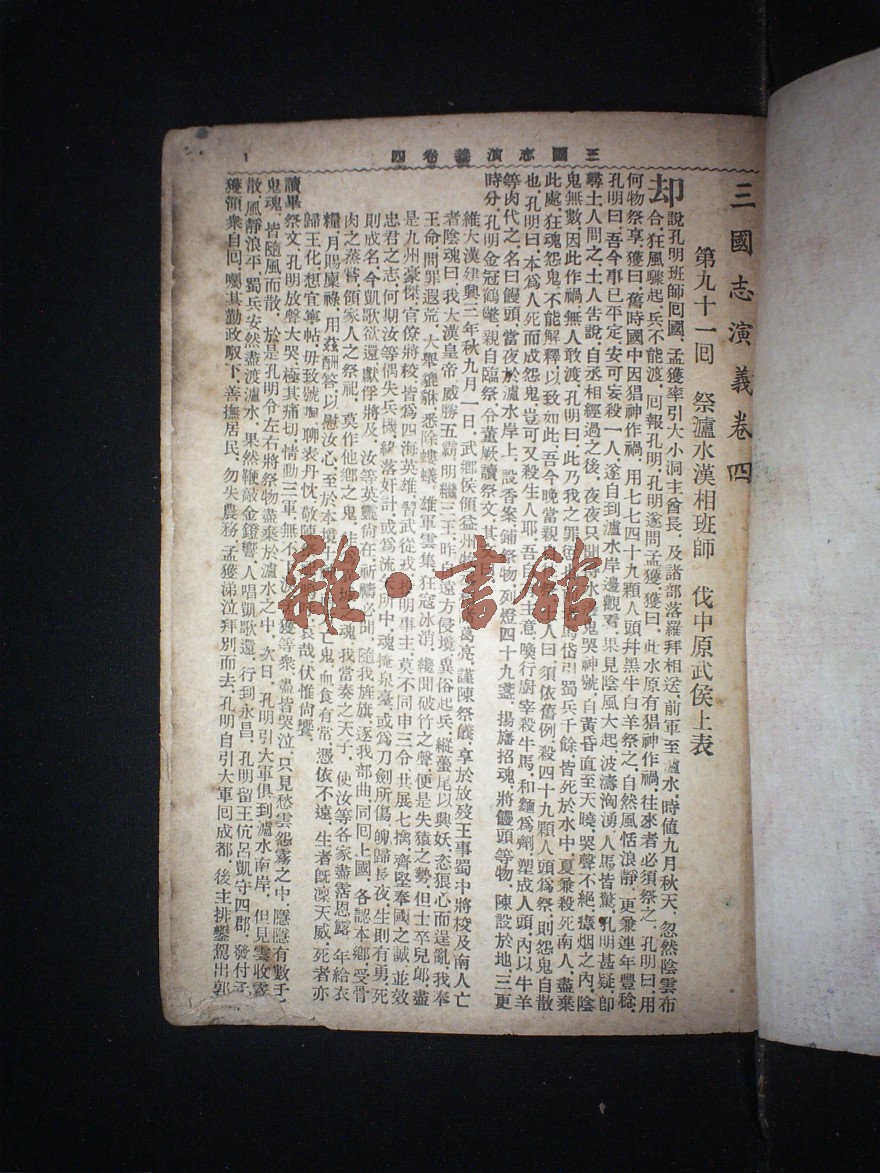 三國志演義卷四
1
三國志演義卷四
第九十一回 祭瀘水漢相班師 伐中原武侯上表
却說孔明班師囘國、孟獲率引大小洞主酋長、及諸部落羅拜相送、前軍至瀘水、時値九月秋天、忽然陰雲布
合、狂風驟起、兵不能渡、囘報孔明、孔明遂問孟獲、獲曰、此水原有猖神作禍、往來者必須祭之、孔明曰、用
何物祭享、獲曰、舊時國中因猖神作禍、用七七四十九顆人頭、幷黑牛白羊祭之、自然風恬浪靜、更兼連年豐稔、
孔明曰、吾今事已平定、安可妄殺一人、遂自到瀘水岸邊觀看、果見陰風大起、波濤洶湧、人馬皆驚、孔明甚疑、卽
尋土人問之、土人告說、自丞相經過之後、夜夜只聞得水邊鬼哭神號、自黃昏直至天曉、哭聲不絕、瘴烟之內、陰
鬼無數、因此作禍、無人敢渡、孔明曰、此乃我之罪愆也、前者馬岱引蜀兵千餘、皆死於水中、更兼殺死南人、盡棄
此處、狂魂怨鬼、不能解釋、以致如此、吾今晚當親自 人曰、須依舊例、殺四十九顆人頭爲祭、則怨鬼自散
也、孔明曰、本爲人死而成怨鬼、豈可又殺生人耶、吾自有主意、喚行廚宰殺牛馬、和麵爲劑、塑成人頭、內以牛羊
等肉代之、名曰饅頭、當夜於瀘水岸上、設香案、鋪祭物、列燈四十九盞、揚旛招魂、將饅頭等物、陳設於地、三更
時分、孔明金冠鶴氅、親自臨祭、令董厥讀祭文、其
維大漢建興三年秋九月一日、武鄉侯領益州 諸葛亮、謹陳祭儀、享於故歿王事蜀中將校及南人亡
者陰魂曰、我大漢皇帝、威勝五霸、明繼三王、昨自遠方侵境、異俗起兵、縱蠆尾以興妖、恣狼心而逞亂、我奉
王命、問罪遐荒、大舉貔貅、悉除螻蟻、雄軍雲集、狂寇冰消、纔聞破竹之聲、便是失猿之勢、但士卒兒郞、盡
是九州豪傑、官僚將校、皆爲四海英雄、習武從戎、投明事主、莫不同申三令、共展七擒、齊堅奉國之誠、並效
忠君之志、何期汝等偶失兵機、緣落奸計、或爲流矢所中、魂掩泉臺、或爲刀劍所傷、魄歸長夜、生則有勇、死
則成名、今凱歌欲還、獻俘將及、汝等英靈尙在、祈禱必聞、隨我旌旗、逐我部曲、同囘上國、各認本鄉、受骨
肉之蒸嘗、領家人之祭祀、莫作他鄉之鬼、 魂、我當奏之天子、使汝等各家盡霑恩露、年給衣
糧、月賜廩祿、用茲酬答、以慰汝心、至於本境土 亡鬼、血食有常、憑依不遠、生者旣凜天威、死者亦
歸王化、想宜寧帖、毋致號啕、聊表丹忱、敬陳祭 哀哉、伏惟尙饗、
讀畢祭文、孔明放聲大哭、極其痛切、情動三軍、無不下淚、 獲等衆、盡皆哭泣、只見愁雲怨霧之中、隱隱有數千
鬼魂、皆隨風而散、於是孔明令左右將祭物盡棄於瀘水之中、次日、孔明引大軍俱到瀘水南岸、但見雲收霧
散、風靜浪平、蜀兵安然盡渡瀘水、果然鞭敲金鐙響、人唱凱歌還、行到永昌、孔明留王伉呂凱守四郡、發付孟
獲領衆自囘、囑其勤政馭下、善撫居民、勿失農務、孟獲涕泣拜別而去、孔明自引大軍囘成都、後主排鑾駕出郭
雜·書館